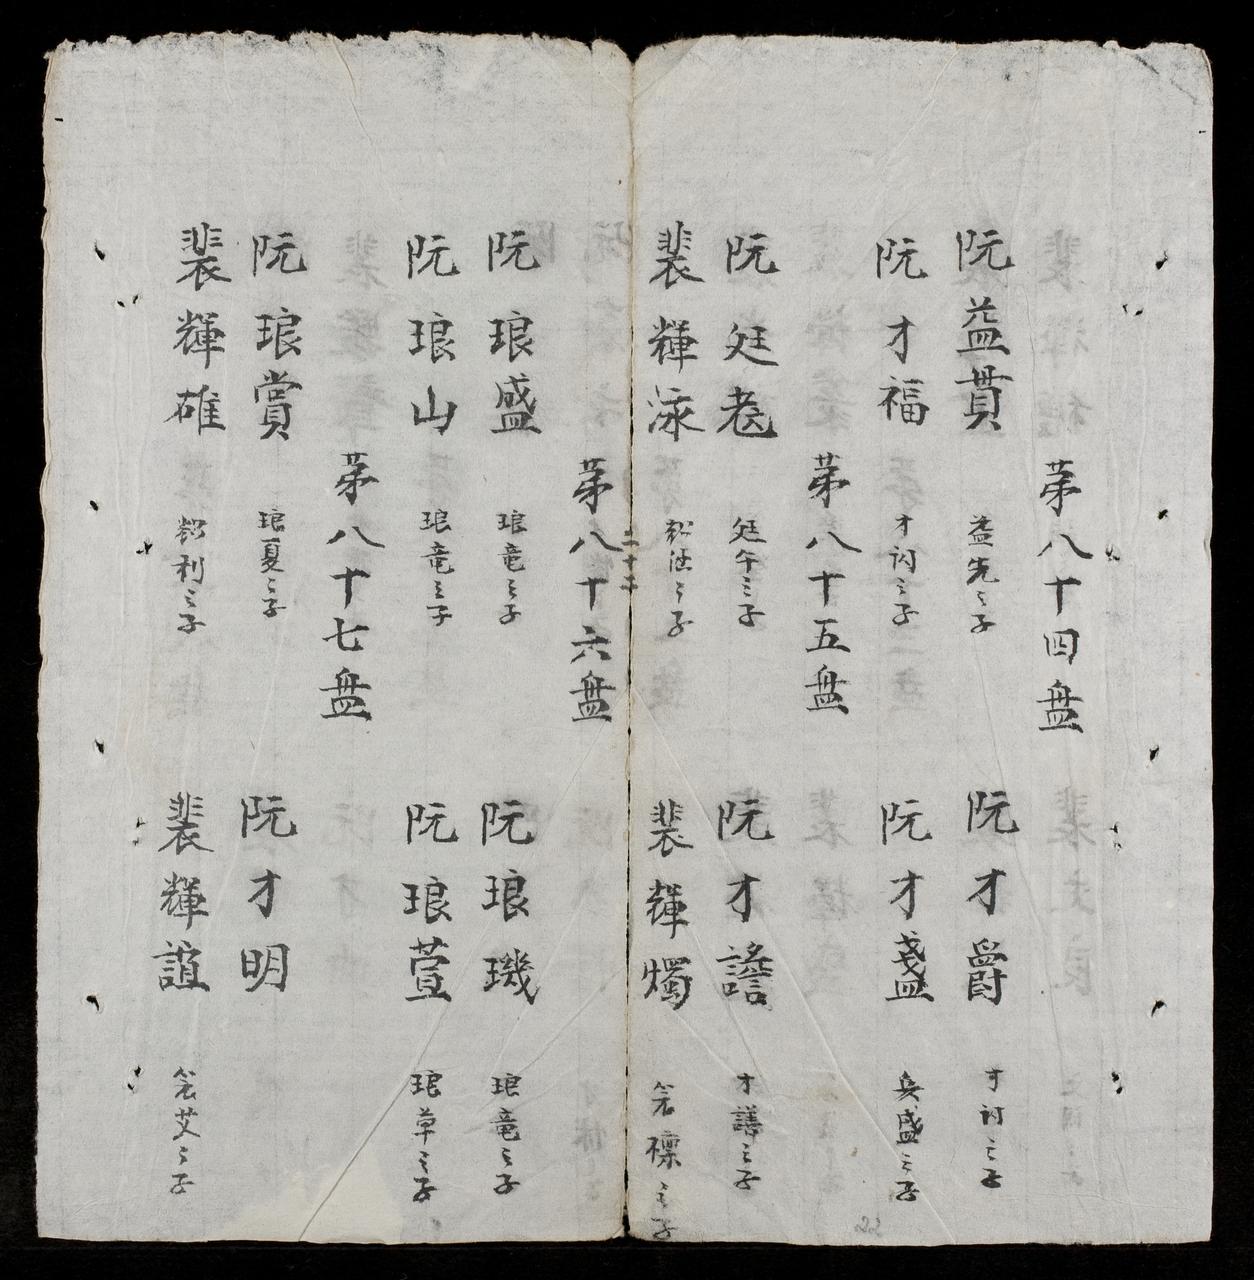 第八十四盘
阮益貫 益先之子
阮才爵 才討之子
阮才福 才討之子
阮才盞 兵盛之子
第八十五盘
阮廷老 廷午之子
阮才譫 才譱之子
裴輝泳 之子
裴輝燭 之子
二十二
第八十六盘
阮琅盛 琅竜之子
阮琅璣 琅竜之子
阮琅山 琅竜之子
阮琅萱 琅草之子
第八十七盘
阮琅賞 琅夏之子
阮才明
裴輝碓 利之子
裴輝誼 艾之子
22